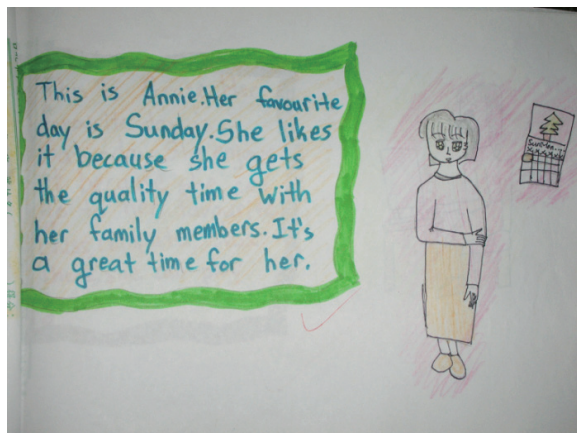 This is Annie.Her favourite
day is Sunday.She likes
it because she gets
the quality time with
her family members.It's
a great time for her.